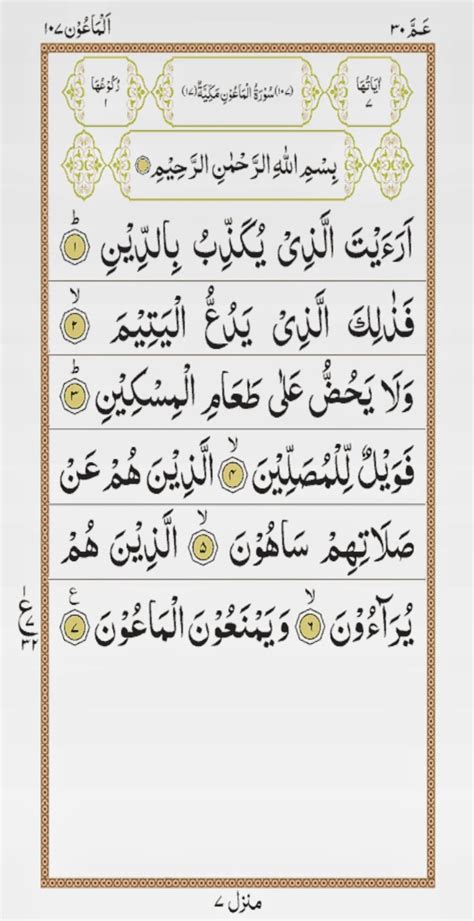 عَـمَّ ٣٠
اَلْمَاعُوْن ١٠٧
اٰيَاتُهَا ٧
(١٠٧) سُوْرَةُ الْمَاعُوْنِ مَكِّيَّةٌ (١٧)
رُكُوْعُهَا ١
بِسْمِ اللّٰهِ الرَّحْمٰنِ الرَّحِيْمِ
اَرَءَيْتَ الَّذِىْ يُكَذِّبُ بِالدِّيْنِ ؕ ١
فَذٰلِكَ الَّذِىْ يَدُعُّ الْيَتِيْمَ ۙ ٢
وَلَا يَحُضُّ عَلٰى طَعَامِ الْمِسْكِيْنِ ؕ ٣
فَوَيْلٌ لِّلْمُصَلِّيْنَ ۙ ٤ الَّذِيْنَ هُمْ عَنْ
صَلَاتِهِمْ سَاهُوْنَ ۙ ٥ الَّذِيْنَ هُمْ
يُرَآءُوْنَ ۙ ٦ وَيَمْنَعُوْنَ الْمَاعُوْنَ ٧ ع
ع ٧ ٣٢
منزل ٧